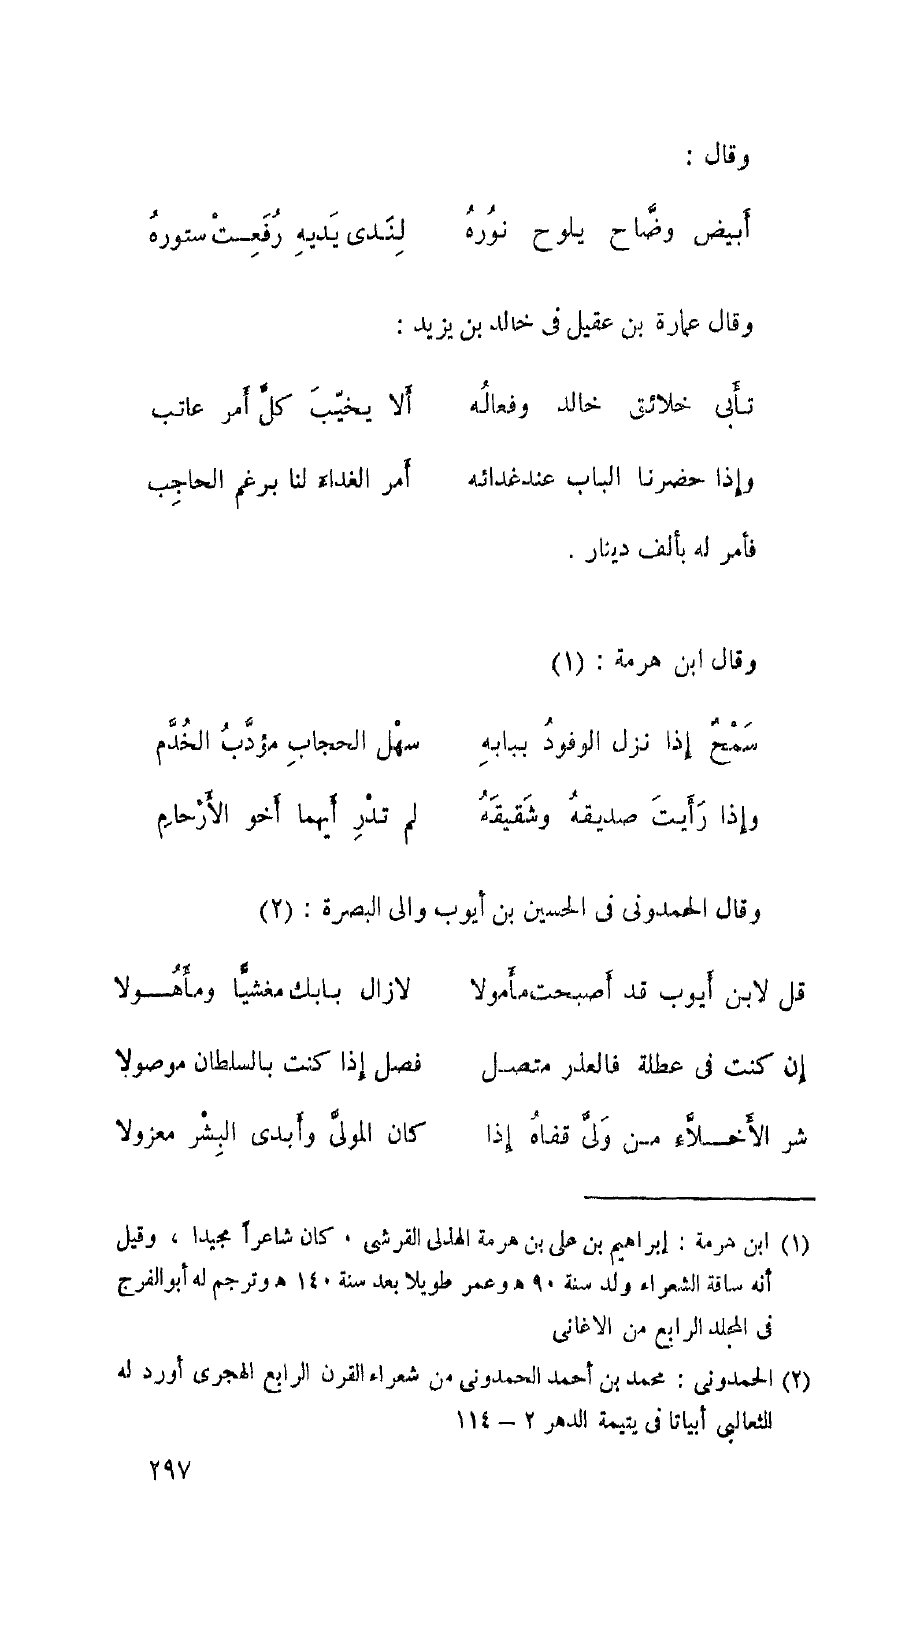 وقال :
أَبيض وضَّاح يلوح نوُرهُ لِنَدى يَديهِ رُفَعِتْ ستورهُ
وقال عمارة بن عقيل فى خالد بن يزيد :
تأَبى خلائق خالد وفعالُه أَلا يخيّبَ كلَّ أَمر عاتب
وإذا حضرنا الباب عند غدائه أَمر الغداء لنا برغم الحاجِب
فأمر له بألف دينار .
وقال ابن هرمة : (١)
سَمْحٌ إذا نزل الوفودُ ببابهِ سهْل الحجابِ مؤدَّبُ الخُدَّم
وإذا رَأَيتَ صديقهُ وشَقيقَهُ لم تدْرِ أَيهما أَخو الأَرْحامِ
وقال الحمدونى فى الحسين بن أيوب والى البصرة : (٢)
قل لابن أَيوب قد أَصبحت مأْمولا لازال بابك مغشيًّا ومأْهُولا
إن كنت فى عطلة فالعذر متصل فصل إذا كنت بالسلطان موصولا
شر الأَخلاَّء من وَلىَّ قفاهُ إذا كان المولىَّ وأَبدى البِشْر معزولا
(١) ابن هرمة : إبراهيم بن على بن هرمة الهذلى القرشى . كان شاعراً مجيدا ، وقيل
أنه ساقة الشعراء ولد سنة ٩٠ ه وعمر طويلا بعد سنة ١٤٠ ه وترجم له أبوالفرج
فى المجلد الرابع من الاغانى
(٢) الحمدونى : محمد بن أحمد الحمدونى من شعراء القرن الرابع الهجرى أورد له
الثعالبى أبياتا فى يتيمة الدهر ٢ – ١١٤
٢٩٧